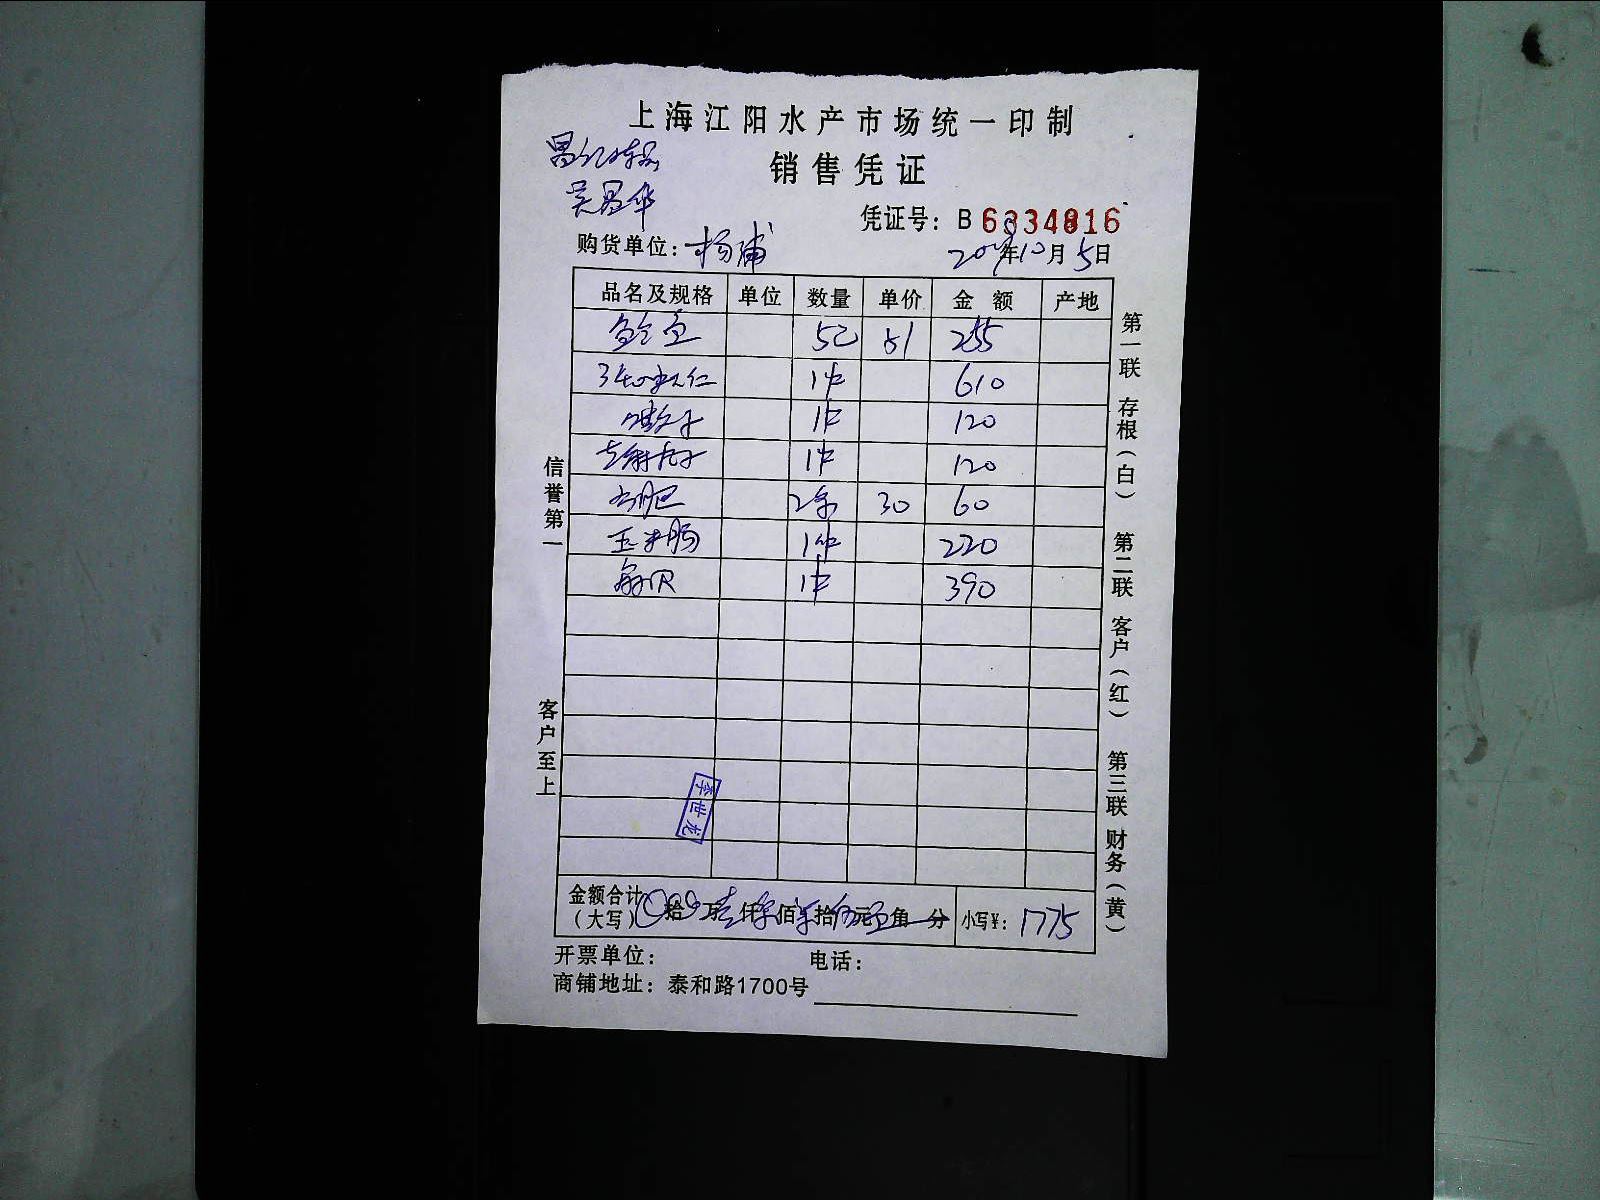 上海江阳水产市场统一印制
销售凭证
吴昌华
凭证号：B 6334816
购货单位：杨浦
年10月5日
品名及规格 单位 数量 单价 金额 产地
51 255
1件 610
1件 120
1件 120
2条 30 60
玉米肠 1件 220
1件 390
信誉第一
客户至上
第一联 存根（白） 第二联 客户（红） 第三联 财务（黄）
李世龙
金额合计（大写） 拾 万壹仟柒佰柒拾伍元 角 分 小写¥：1775
开票单位： 电话：
商铺地址：泰和路1700号